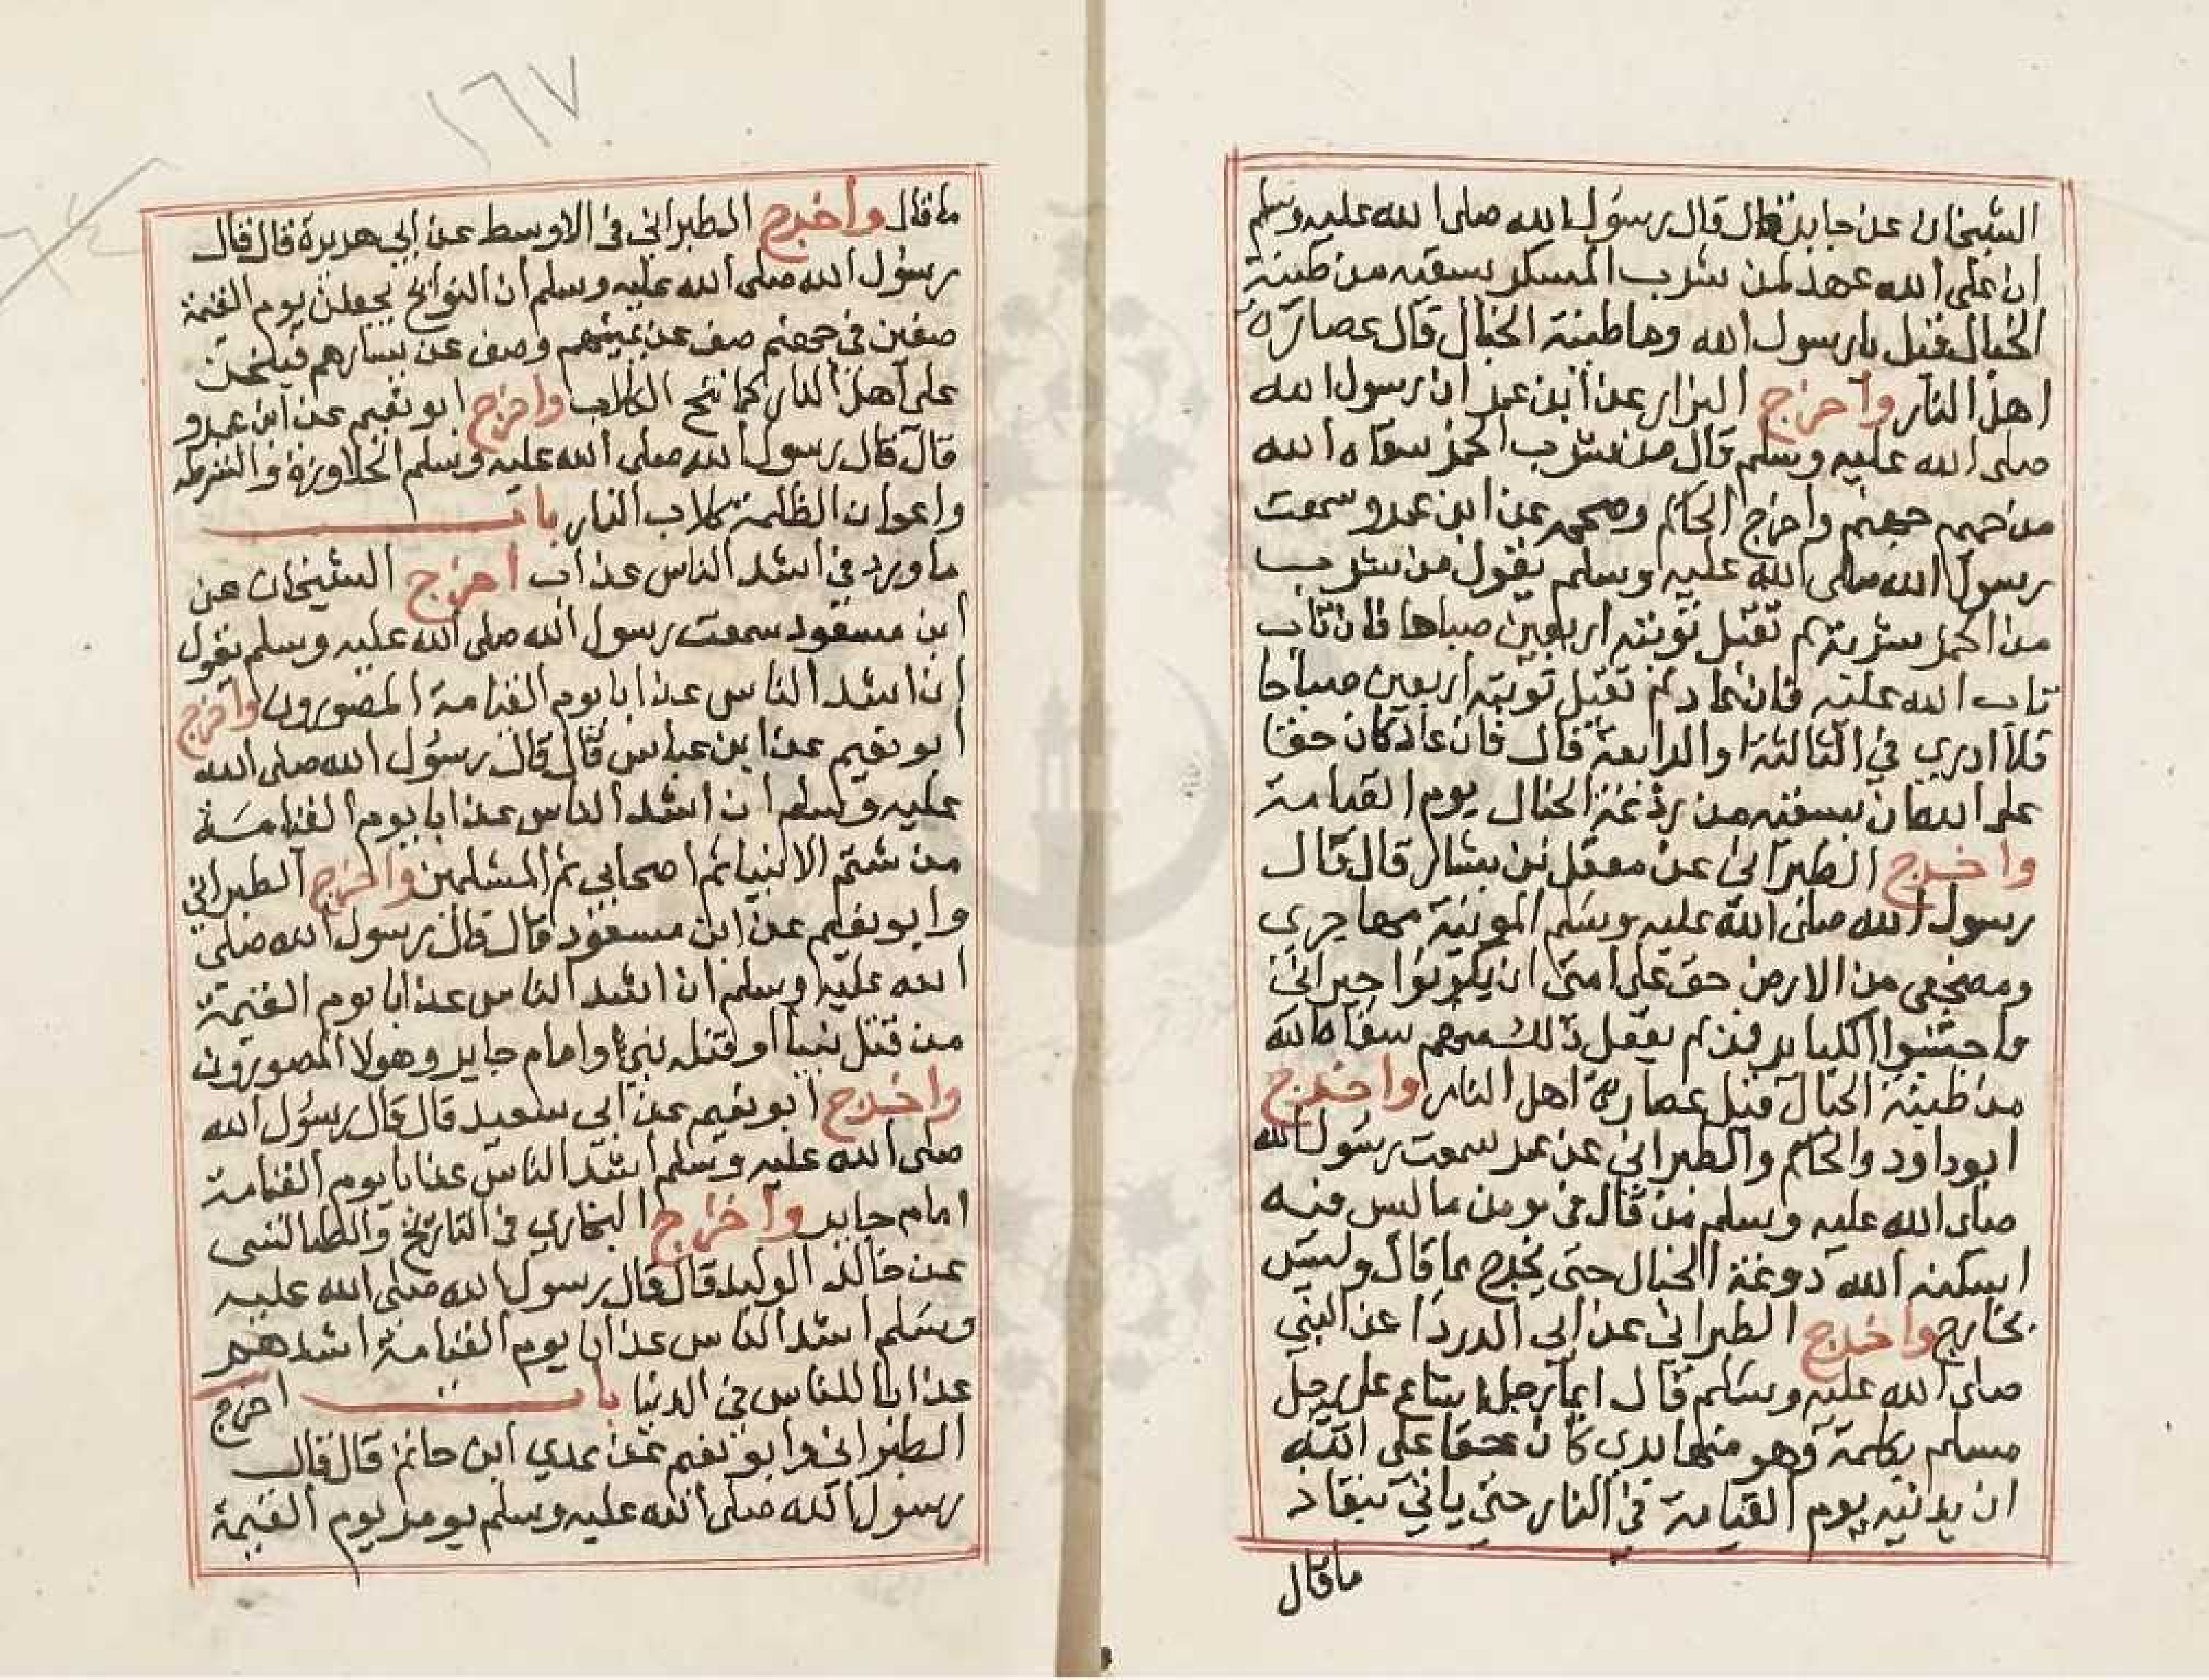 الشيخان عن جابر قال قال رسول الله صلى الله عليه وسلم
ان على الله عهد لمن شرب المسكر يسقيه من طينة
الخبال قيل يارسول الله وما طينة الخبال قال عصارة
اهل النار واخرج البزار عن ابن عمر ان رسول الله
صلى الله عليه وسلم قال من شرب الخمر سقاه الله
من حميم جهنم واخرج الحاكم وصححه عن ابن عمرو سمعت
رسول الله صلى الله عليه وسلم يقول من شرب
من الخمر شربة لم تقبل توبته اربعين صباحا فان تاب
تاب الله عليه فان عاد لم تقبل توبته اربعين صباحا
فلا ادري في الثالثة او الرابعة قال فان عاد كان حقا
على الله ان يسقيه من ردغة الخبال يوم القيامة
واخرج الطبراني عن معقل بن يسار قال قال
رسول الله صلى الله عليه وسلم المدينة مهاجري
ومضجعي من الارض حق على امتي ان يكونوا جيراني
ما اجتنبوا الكباير فمن لم يفعل ذلك منهم سقاه الله
من طينة الخبال قيل عصارة اهل النار واخرج
ابوداود والحاكم والطبراني عن عمر سمعت رسول الله
صلى الله عليه وسلم من قال في مومن ما ليس فيه
اسكنه الله دوغة الخبال حتى يخرج مما قال وليس
بخارج واخرج الطبراني عن ابي الدردا عن النبي
صلى الله عليه وسلم قال ايما رجل اشاع على رجل
مسلم بكلمة وهو منها بري كان حقا على الله
ان يدنيه يوم القيامة في النار حتى ياتي بنفاذ
ماقال
١٦٧
ما قال واخرج الطبراني في الاوسط عن ابي هريرة قال قال
رسول الله صلى الله عليه وسلم ان النوايح يجعلن يوم القيمة
صفين في جهنم صف عن يمينهم وصف عن يسارهم فينبحن
على اهل النار كما تنبح الكلاب واخرج ابو نعيم عن ابن عمرو
قال قال رسول الله صلى الله عليه وسلم الجلاوزة والشرط
واعوان الظلمة كلاب النار باب
ما ورد في اشد الناس عذاب اخرج الشيخان عن
ابن مسعود سمعت رسول الله صلى الله عليه وسلم يقول
ان اشد الناس عذابا يوم القيامة المصورون واخرج
ابو نعيم عن ابن عباس قال قال رسول الله صلى الله
عليه وسلم ان اشد الناس عذابا يوم القيامة
من شتم الانبيا ثم اصحابي ثم المسلمين واخرج الطبراني
وابو نعيم عن ابن مسعود قال قال رسول الله صلى
الله عليه وسلم ان اشد الناس عذابا يوم القيمة
من قتل نبيا او قتله نبي وامام جاير وهولا المصورون
واخرج ابو نعيم عن ابي سعيد قال قال رسول الله
صلى الله عليه وسلم اشد الناس عذابا يوم القيامة
امام جاير واخرج البخاري في التاريخ والطيالسي
عن خالد الوليد قال قال رسول الله صلى الله عليه
وسلم اشد الناس عذابا يوم القيامة اشدهم
عذابا للناس في الدنيا باب اخرج
الطبراني وابو نعيم عن عدي ابن حاتم قال قال
رسول الله صلى الله عليه وسلم يومر يوم القيمة